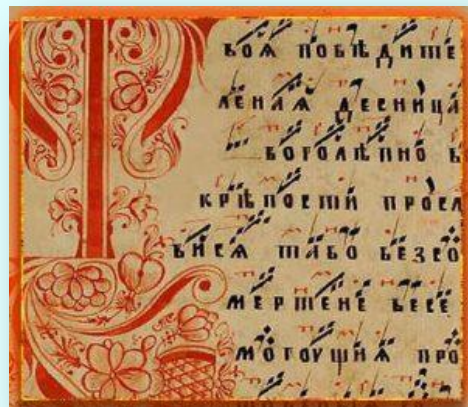 ВОѦ ПОБѢДИТЕ
ЛЕНАѦ ДЕСНИЦА
БОГОЛѢПНО В
КРѢПОСТИ ПРОСЛ
ВИСѦ ТАБО БЕЗСО
МЕРТЕНЕ ВЕСЕ
МОГОУЩИѦ ПРО